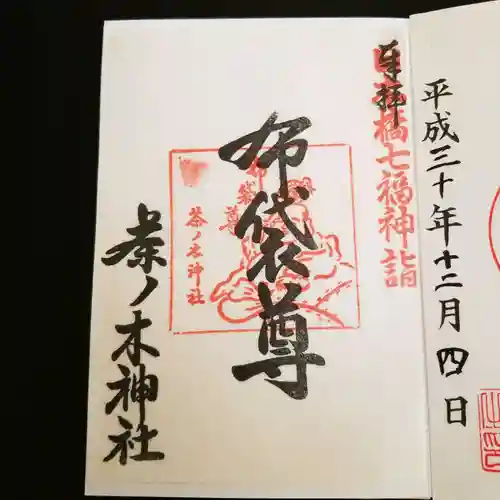 平成三十年十二月四日
奉拝
日本橋七福神詣
布袋尊
布袋尊
茶ノ木神社
茶ノ木神社